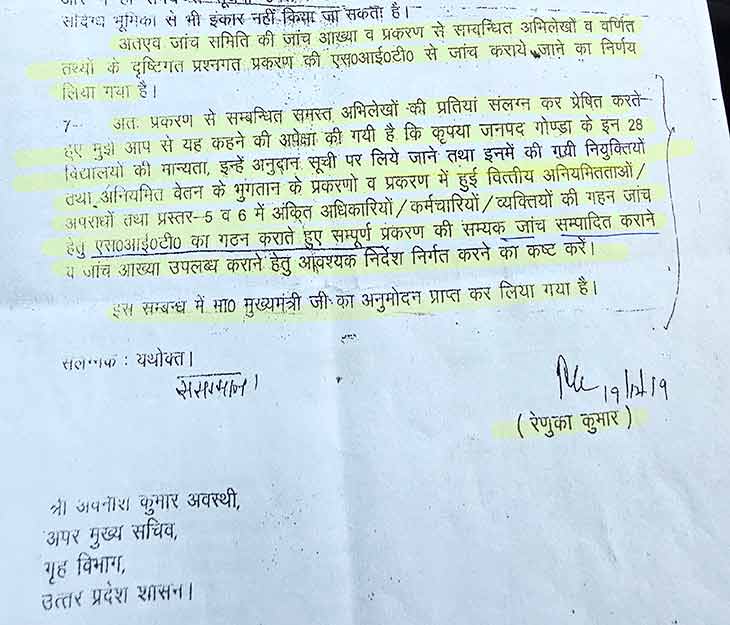 संदिग्ध भूमिका से भी इंकार नहीं किया जा सकता है।
अतएव जांच समिति की जांच आख्या व प्रकरण से सम्बन्धित अभिलेखों व वर्णित
तथ्यों के दृष्टिगत प्रश्नगत प्रकरण की एस०आई०टी० से जांच कराये जाने का निर्णय
लिया गया है।
7- अतः प्रकरण से सम्बन्धित समस्त अभिलेखों की प्रतियां संलग्न कर प्रेषित करते
हुए मुझे आप से यह कहने की अपेक्षा की गयी है कि कृपया जनपद गोण्डा के इन 28
विद्यालयों की मान्यता, इन्हें अनुदान सूची पर लिये जाने तथा इनमें की गयी नियुक्तियों
तथा अनियमित वेतन के भुगतान के प्रकरणो व प्रकरण में हुई वित्तीय अनियमितताओं/
अपराधों तथा प्रस्तर-5 व 6 में अंकित अधिकारियों/कर्मचारियों/व्यक्तियों की गहन जांच
हेतु एस०आई०टी० का गठन कराते हुए सम्पूर्ण प्रकरण की सम्यक जांच सम्पादित कराने
व जांच आख्या उपलब्ध कराने हेतु आवश्यक निर्देश निर्गत करने का कष्ट करें।
इस सम्बन्ध में मा० मुख्यमंत्री जी का अनुमोदन प्राप्त कर लिया गया है।
संलग्नक : यथोक्त।
ससम्मान।
19/12/19
(रेणुका कुमार)
श्री अवनीश कुमार अवस्थी,
अपर मुख्य सचिव,
गृह विभाग,
उत्तर प्रदेश शासन।